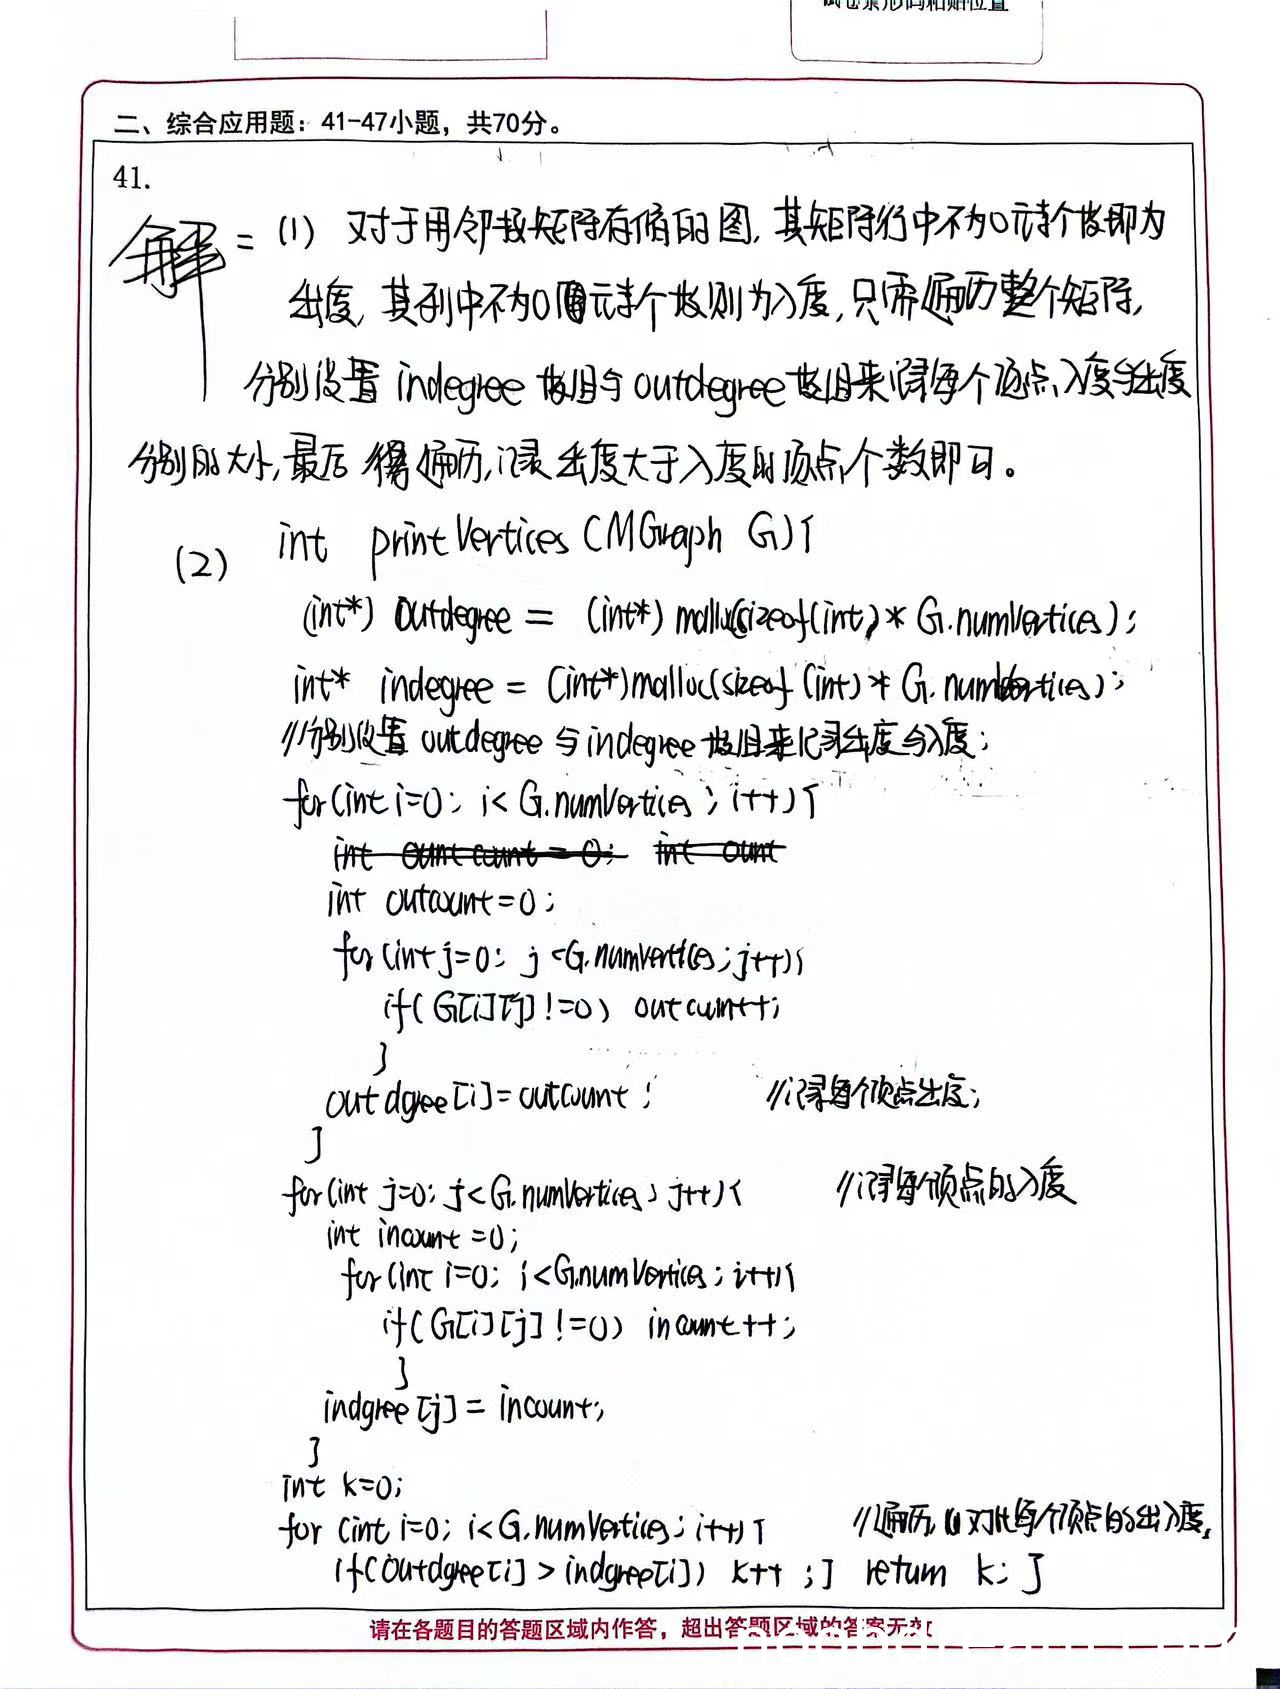 试卷条形码粘贴位置
二、综合应用题：41-47小题，共70分。
41.
解: (1) 对于用邻接矩阵存储的图,其矩阵行中不为0元素个数即为
出度,其列中不为0元素个数则为入度,只需遍历整个矩阵,
分别设置 indegree 数组与 outdegree 数组来记录每个顶点入度与出度
分别的大小,最后 遍历,记录 出度大于入度的顶点个数即可。
(2) int printVertices(MGraph G){
(int*) outdegree = (int*) malloc(sizeof(int)* G.numVertices);
int* indegree = (int*)malloc(sizeof(int)* G.numVertices);
//分别设置 outdegree 与 indegree 数组来记录出度与入度;
for(int i=0; i< G.numVertices; i++){
int outcount=0;
for(int j=0; j<G.numVertices; j++){
if( G[i][j] !=0) outcount++;
}
outdgree[i]=outcount; //记录每个顶点出度;
}
for(int j=0; j<G.numVertices; j++){ //记录每个顶点的入度
int incount=0;
for(int i=0; i<G.numVertices; i++){
if(G[i][j] !=0) incount++;
}
indgree[j] = incount;
}
int k=0;
for (int i=0; i<G.numVertices; i++){ //遍历,对比每个顶点的出入度,
if(outdgree[i] > indgree[i]) k++ ;} return k; }
请在各题目的答题区域内作答，超出答题区域的答案无效